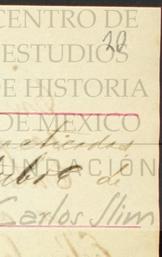 CENTRO DE
20
ESTUDIOS
DE HISTORIA
DE MEXICO
FUNDACIÓN
de
Carlos Slim